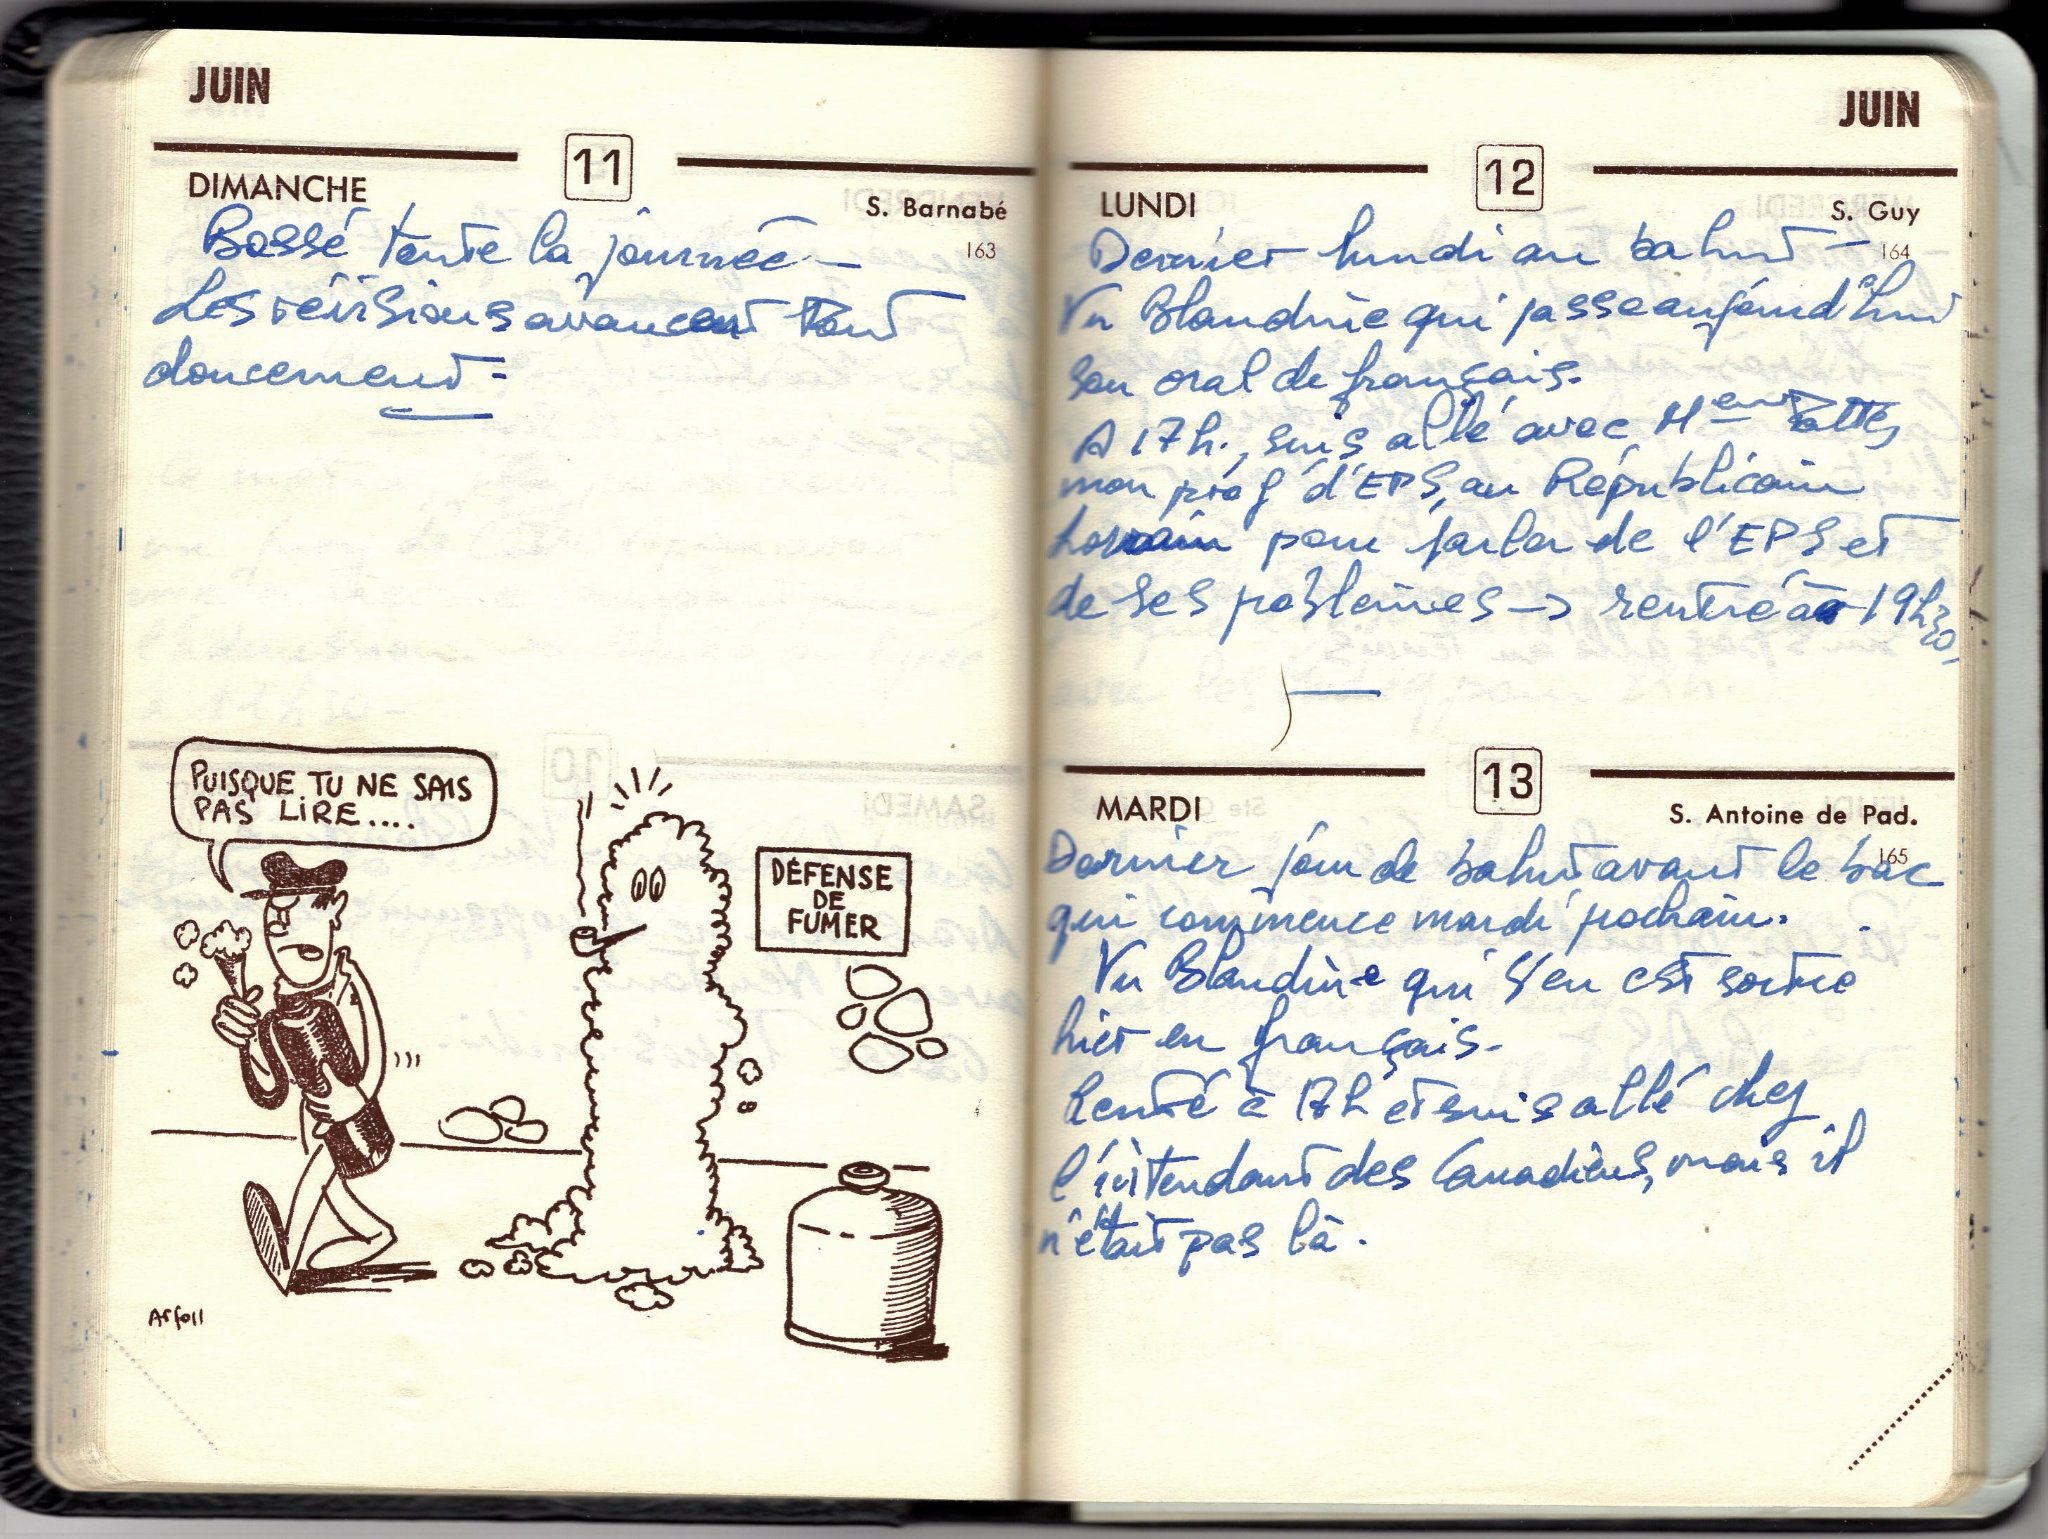 JUIN
11
DIMANCHE
S. Barnabé
163
Bossé toute la journée -
Les révisions avancent tout
doucement -
PUISQUE TU NE SAIS
PAS LIRE....
DÉFENSE
DE
FUMER
JUIN
12
LUNDI
S. Guy
164
Dernier lundi au bahut -
Vu Blandine qui passe aujourd'hui
son oral de français.
A 17h., suis allé avec
mon prof d'EPS, au Républicain
Lorrain pour parler de l'EPS et
de ses problèmes -> rentré à 19h30.
13
MARDI
S. Antoine de Pad.
165
Dernier jour de bahut avant le bac
qui commence mardi prochain.
Vu Blandine qui s'en est sortie
hier en français.
Rentré à 17h et suis allé chez
l'intendant des Canadiens, mais il
n'était pas là.